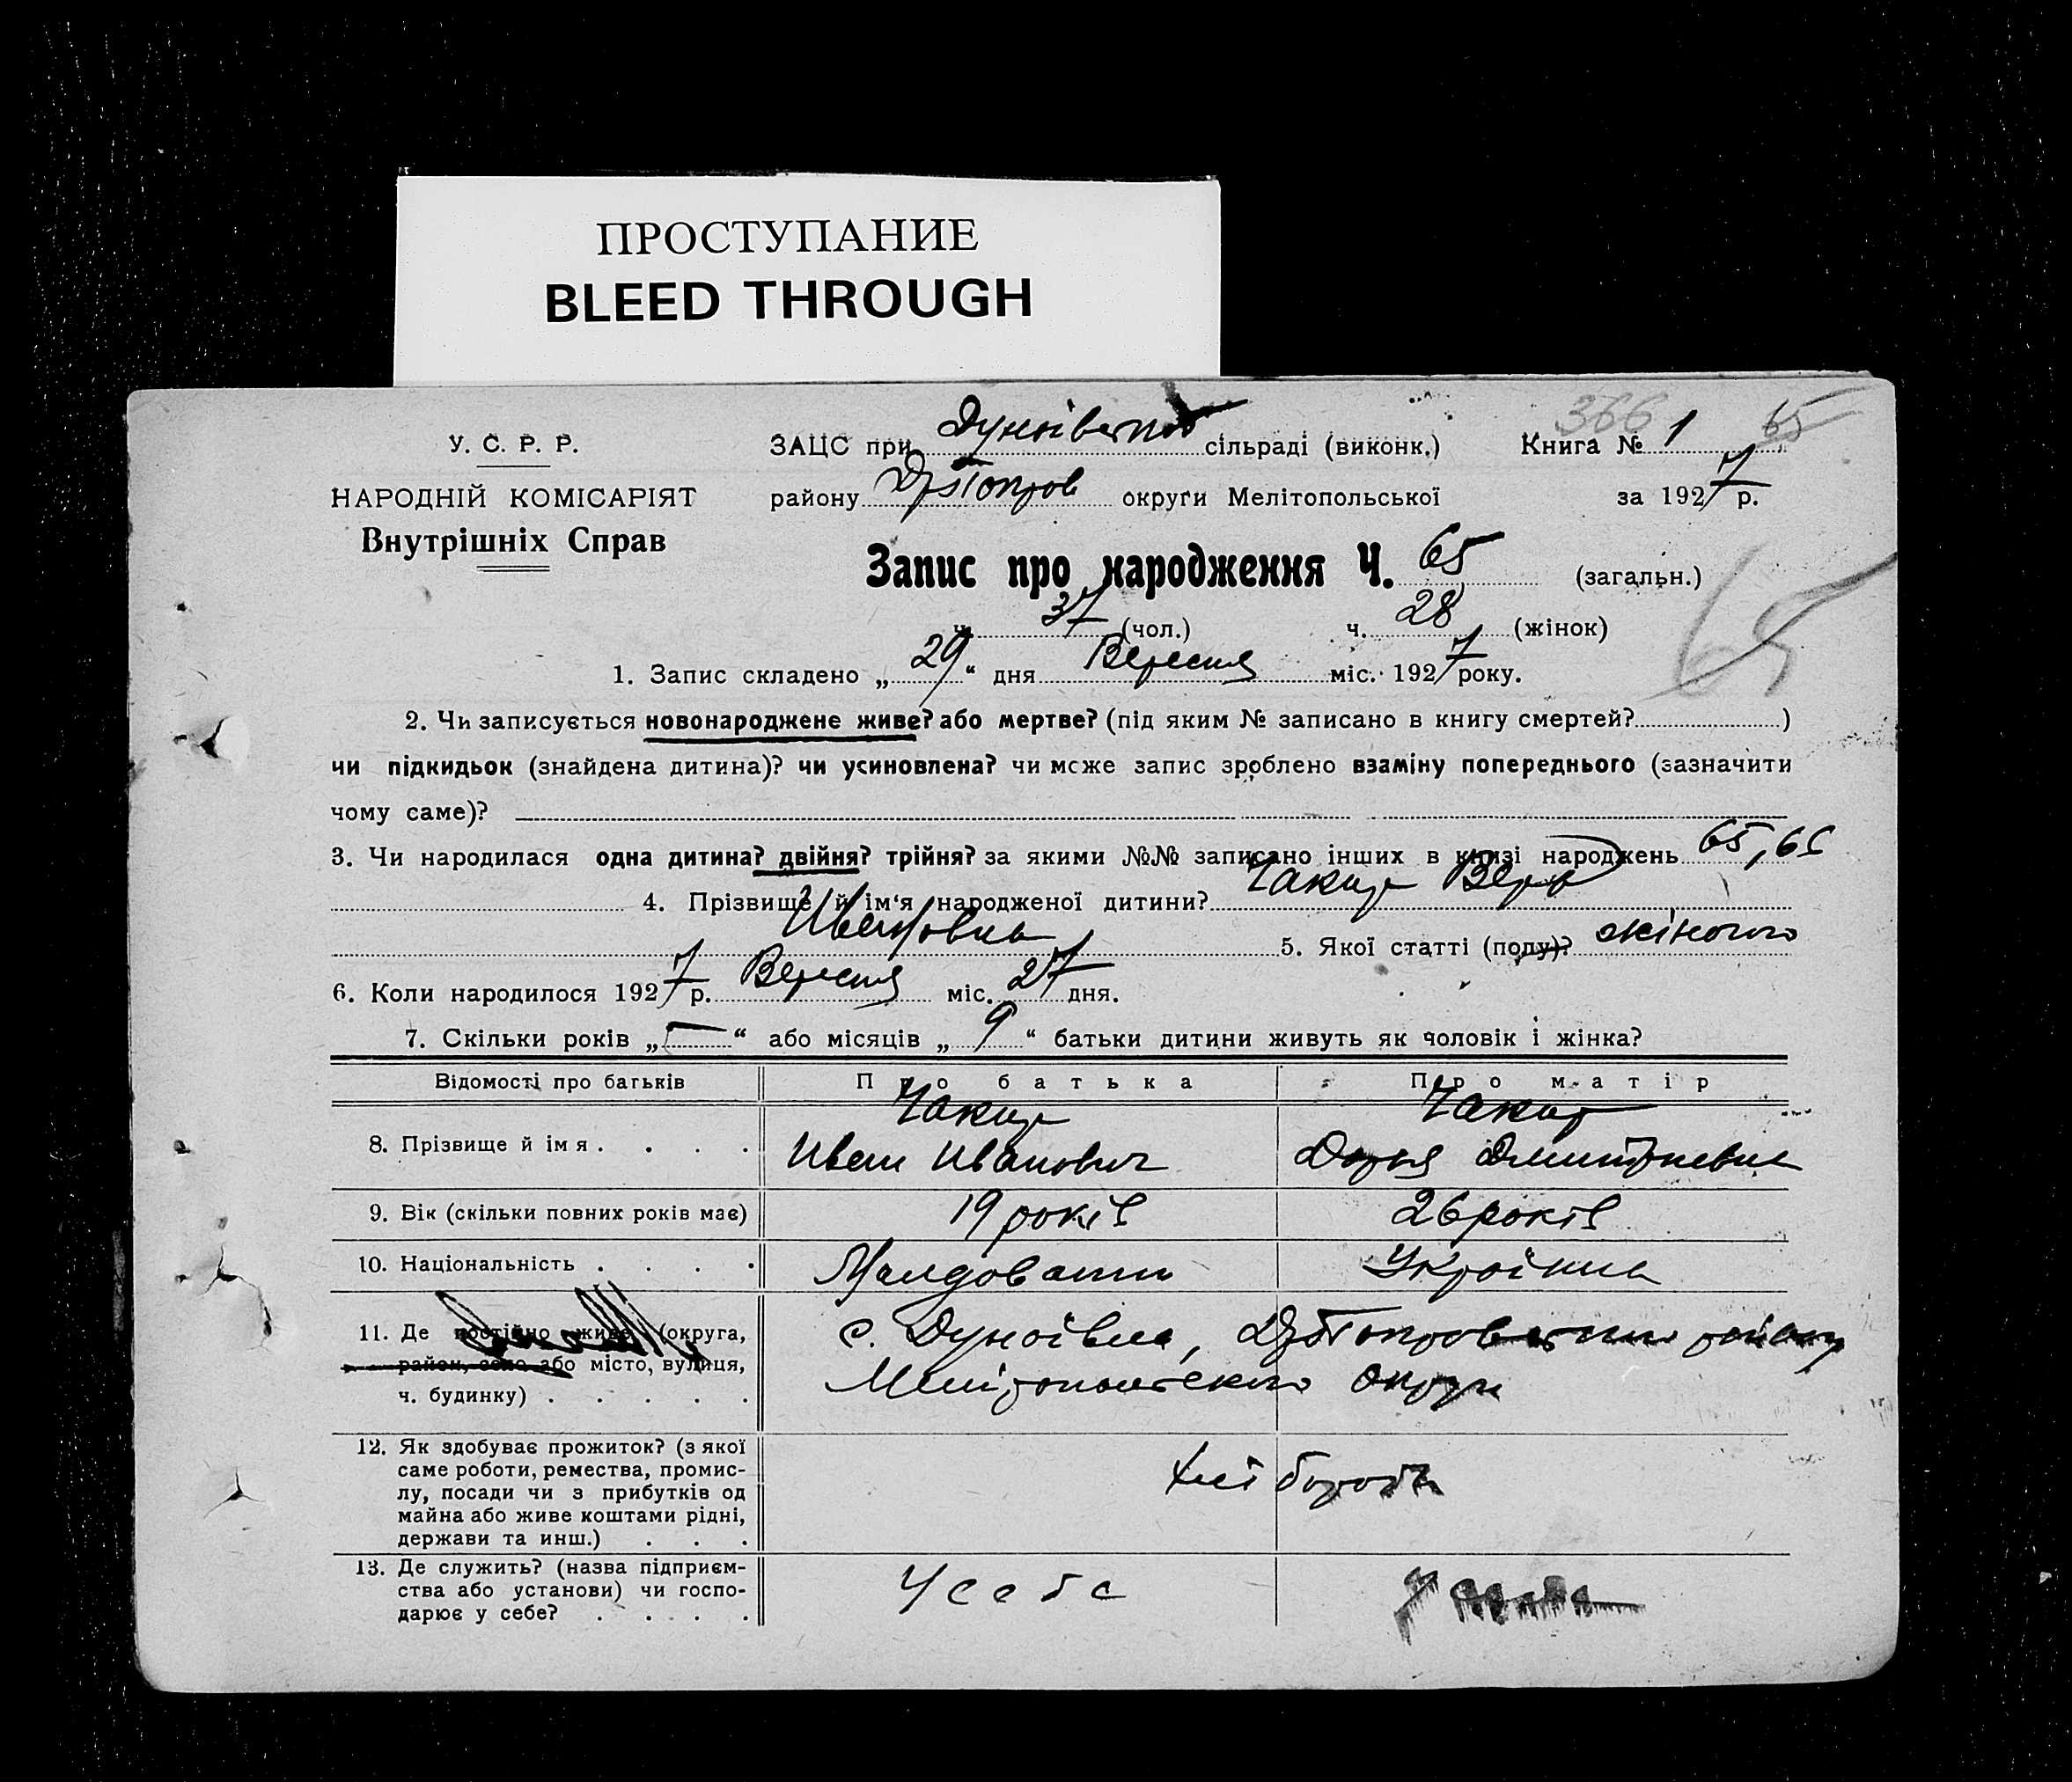 ПРОСТУПАНИЕ
BLEED THROUGH
366 65
У. С. Р. Р. ЗАЦС при Дунаївської сільраді (виконк.) Книга № 1
НАРОДНІЙ КОМІСАРІЯТ району округи Мелітопольської за 1927 р.
Внутрішніх Справ
Запис про народження Ч. 65 (загальн.)
ч. 37 (чол.) ч. 28 (жінок)
65
1. Запис складено „29“ дня Вересня міс. 1927 року.
2. Чи записується новонароджене живе? або мертве? (під яким № записано в книгу смертей? )
чи підкидьок (знайдена дитина)? чи усиновлена? чи може запис зроблено взаміну попереднього (зазначити
чому саме)?
3. Чи народилася одна дитина? двійня? трійня? за якими №№ записано інших в книзі народжень 65, 66
4. Прізвище й ім'я народженої дитини? Чакир Вера
Ивановна 5. Якої статті (полу)? жіночого
6. Коли народилось 1927 р. Вересня міс. 27 дня.
7. Скільки років „—“ або місяців „9“ батьки дитини живуть як чоловік і жінка?
Відомості про батьків Про батька Про матір
8. Прізвище й імя . . . . Чакир Иван Иванович Чакир Дарья Дмитриевна
9. Вік (скільки повних років має) 19 років 26 років
10. Національність . . . . Українка
11. Де постійно живе (округа,
район, село або місто, вулиця,
ч. будинку) . . . . .
с. Дунаївка, району
Мелітопольського округи
12. Як здобуває прожиток? (з якої
саме роботи, ремества, промис-
лу, посади чи з прибутків од
майна або живе коштами рідні,
держави та инш.) . . .
хлібороби
13. Де служить? (назва підприєм-
ства або установи) чи госпо-
дарює у себе? . . . .
У себе У себе